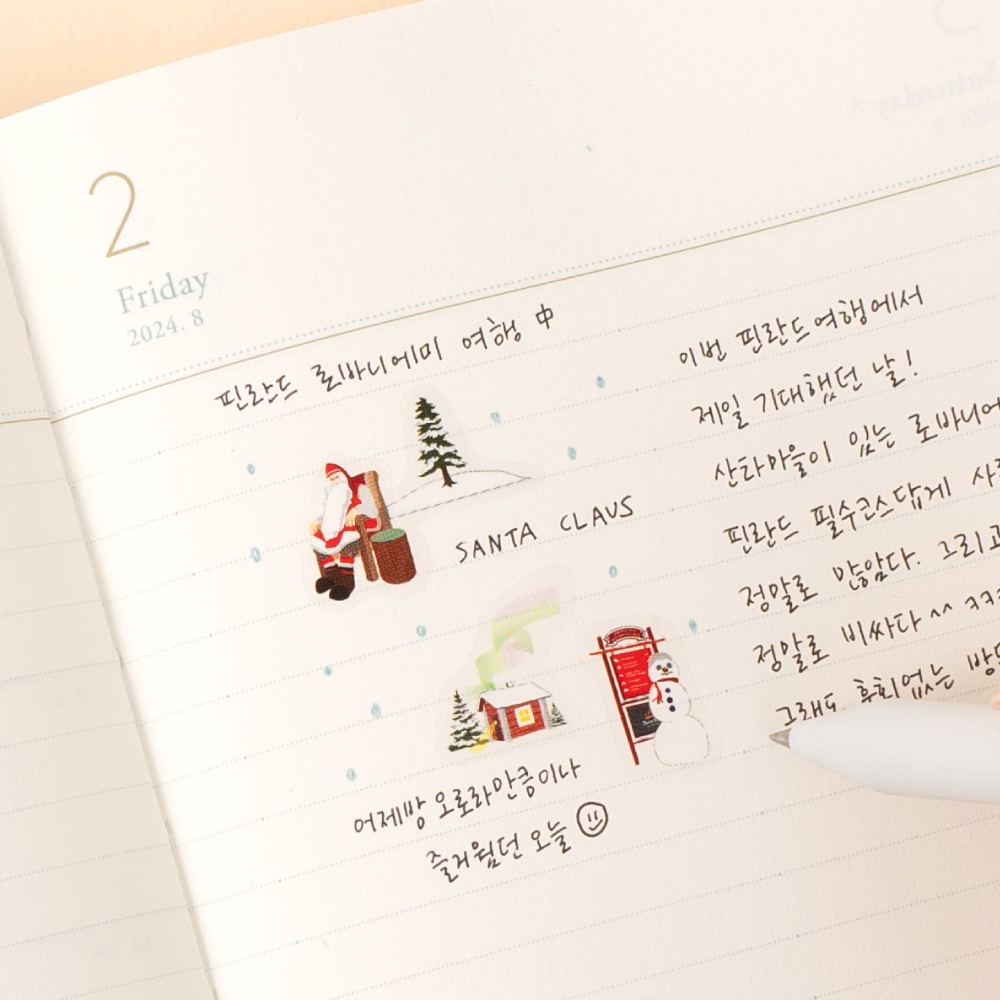 2
Friday
2024. 8
핀란드 로바니에미 여행 中
SANTA CLAUS
어제밤 오로라만큼이나
즐거웠던 오늘
이번 핀란드여행에서
제일 기대했던 날!
산타마을이 있는 로바니에
핀란드 필수코스답게 사
정말로 많았다. 그리고
정말로 비싸다 ^^ ㅋㅋ
그래도 후회없는 방
Saturday